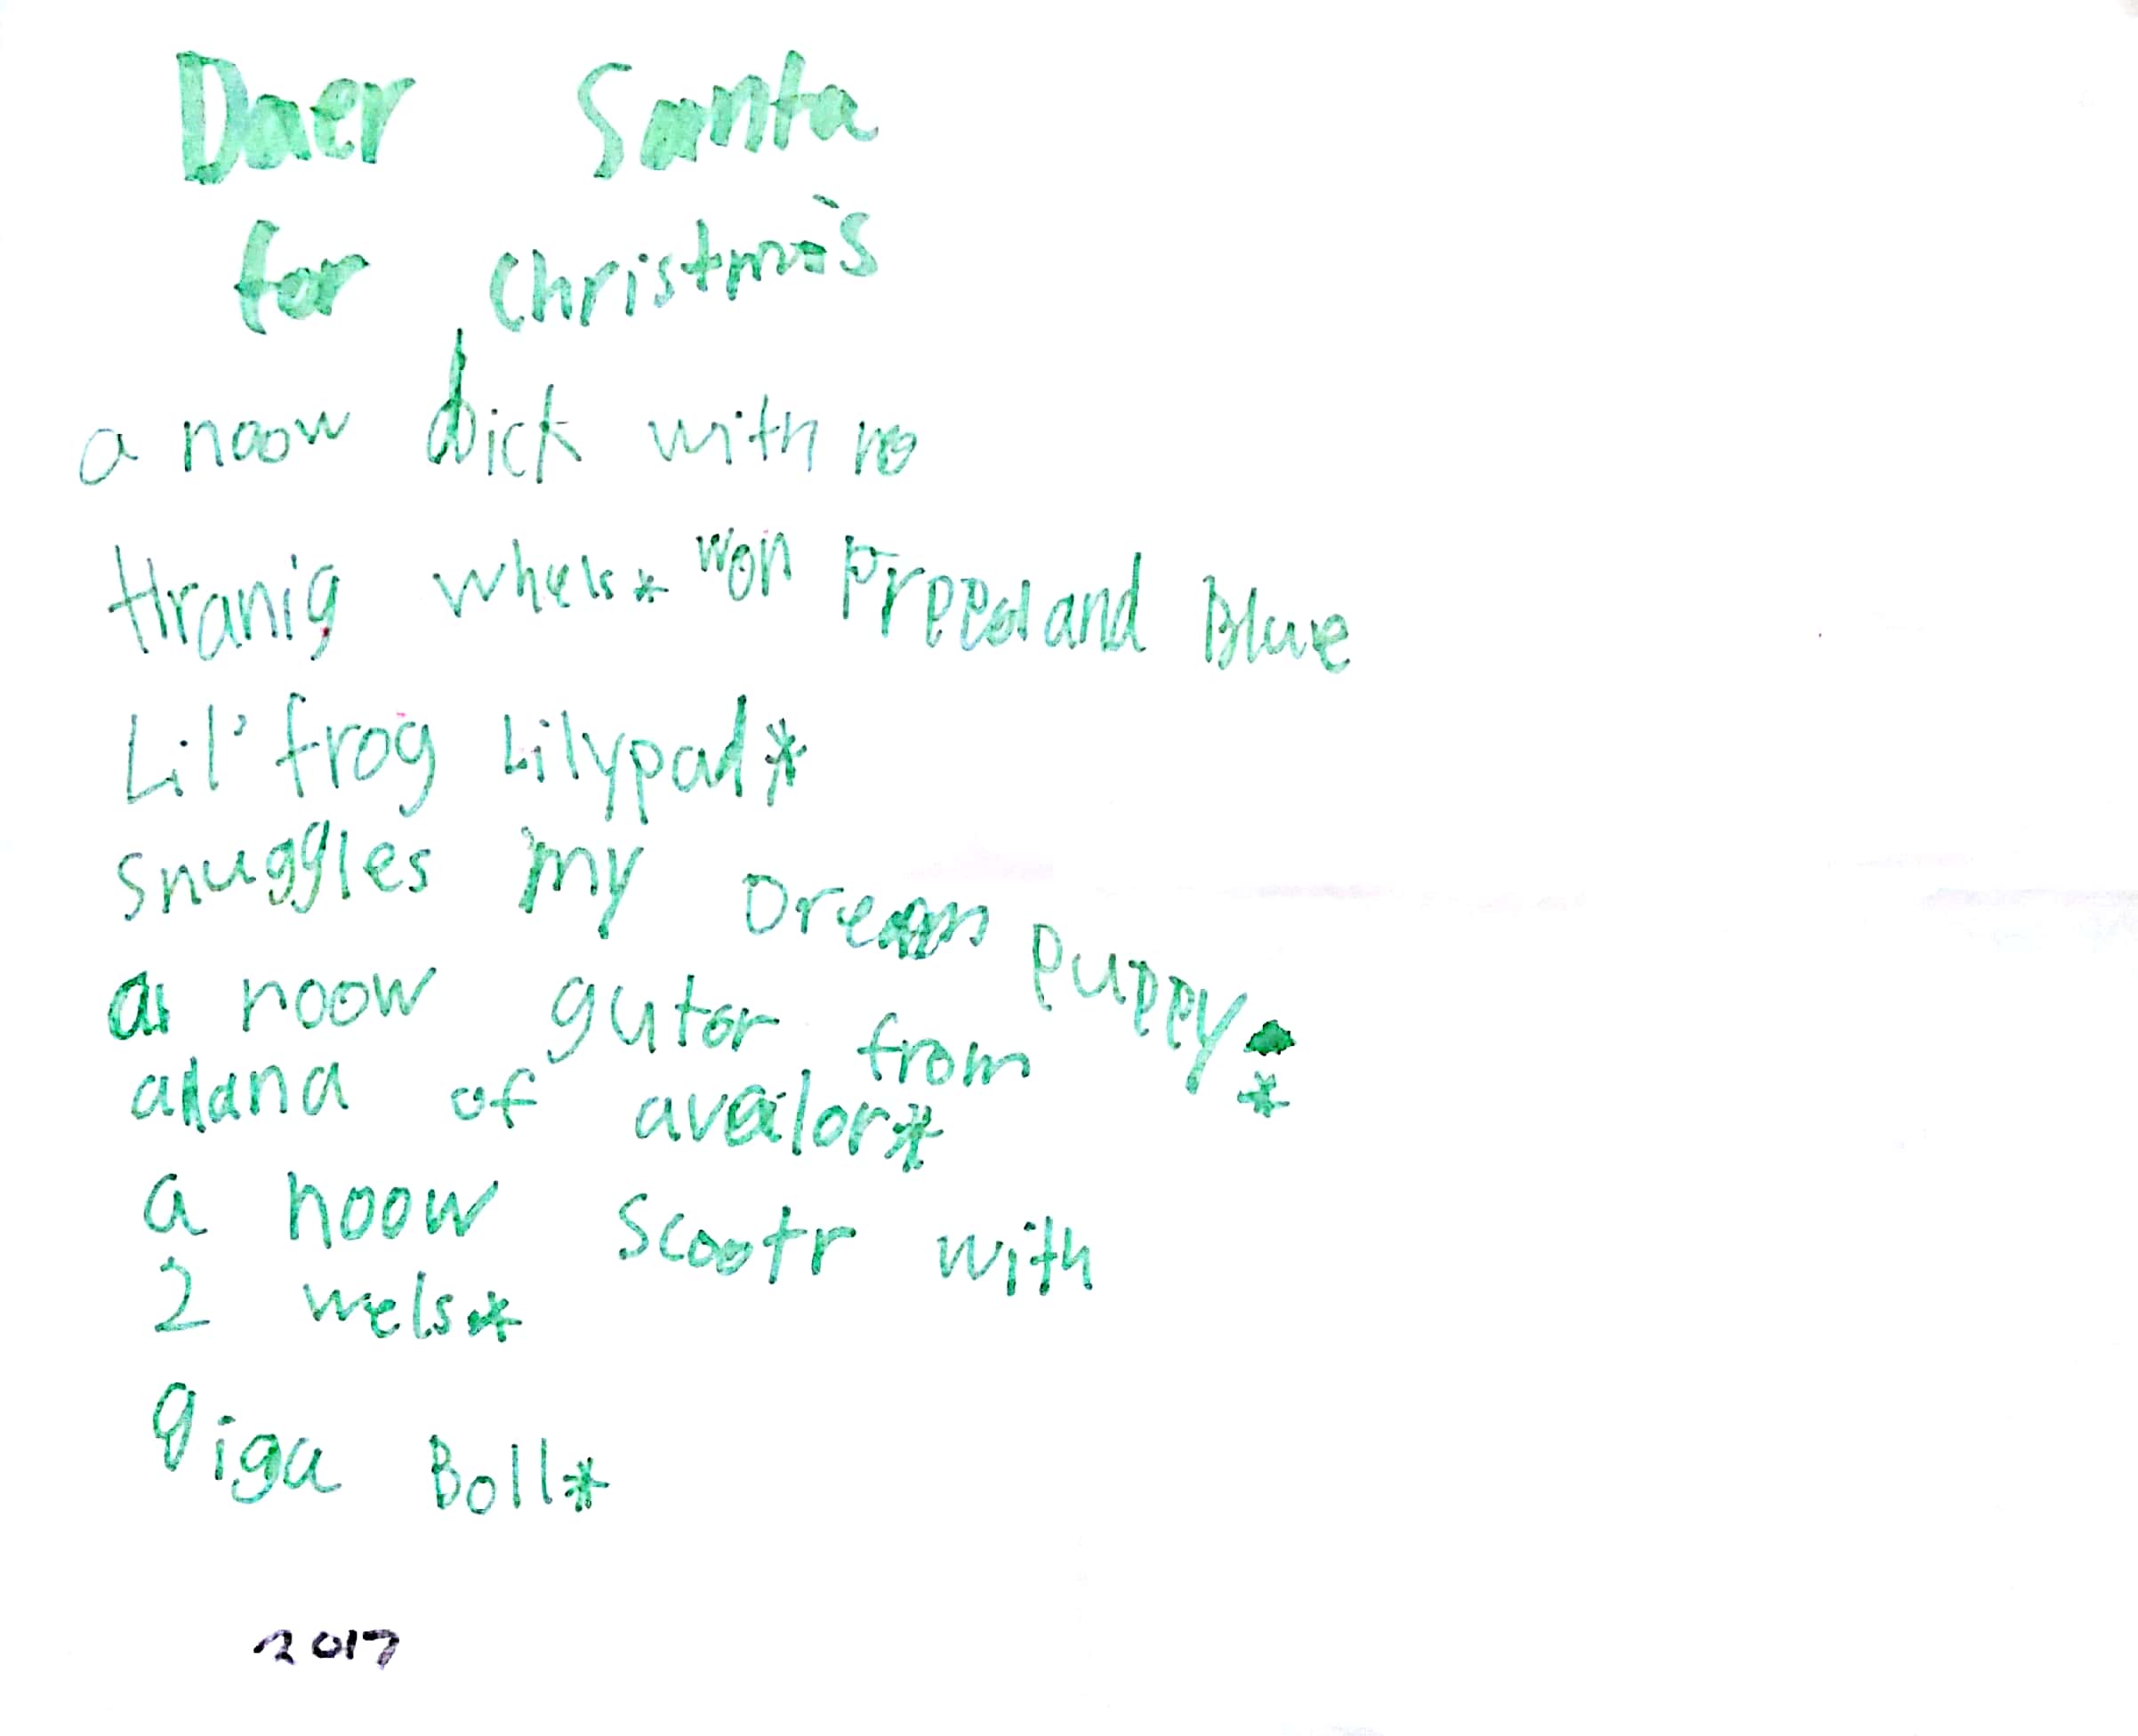 Daer Santa
for Christmas
a noow bick with no
Hranig whels* won Preeol and Blue
Lil' frog Lilypad*
snuggles my Dream Puppy*
a noow gutor from
alana of avalor*
a noow scootr with
2 wels*
giga Boll*
2017